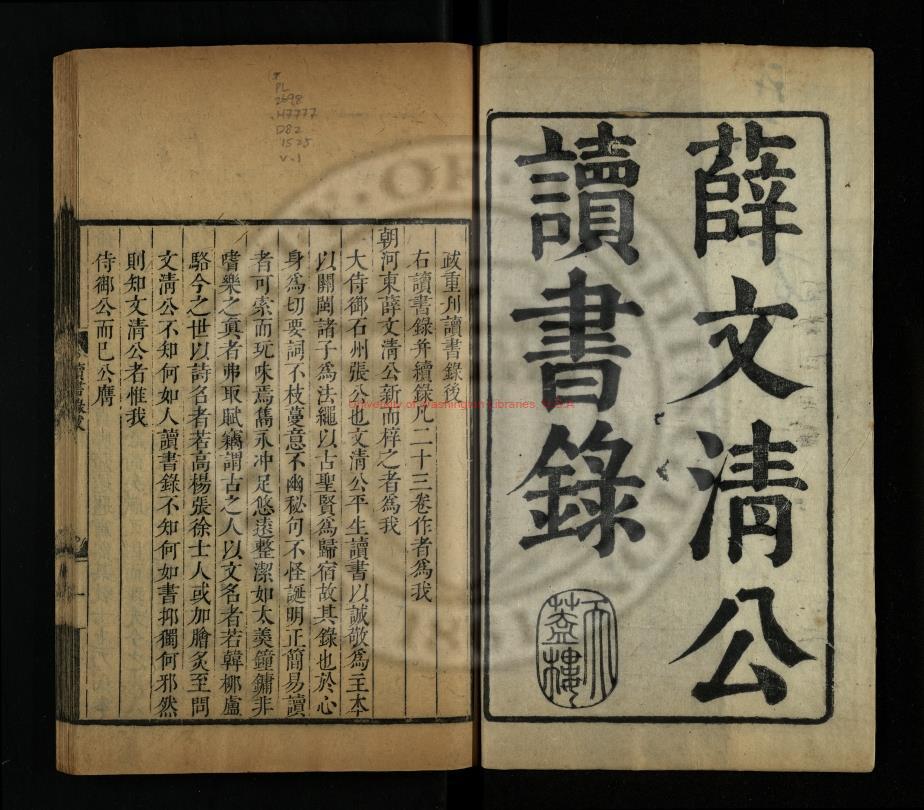 薛文清公
讀書錄
天蓋樓
重刋讀書錄後
右讀書錄并續錄凡二十三卷作者爲我
朝河東薛文清公新而梓之者爲我
大侍御石州張公也文清公平生讀書以誠敬爲主本
以關閩諸子爲法繩以古聖賢爲歸宿故其錄也於心
身爲切要詞不枝蔓意不幽秘句不怪誕明正簡易讀
者可索而玩味焉雋永冲足悠遠整潔如太羹鐘鏞非
嗜樂之眞者弗取賦竊謂古之人以文名者若韓柳盧
駱今之世以詩名者若高楊張徐士人或加膾炙至問
文淸公不知何如人讀書錄不知何如書抑獨何邪然
則知文淸公者惟我
侍御公而已公膺
讀書錄
一
PL
2698
.H7777
D82
1525
v.1
University of Washington Libraries, U.S.A